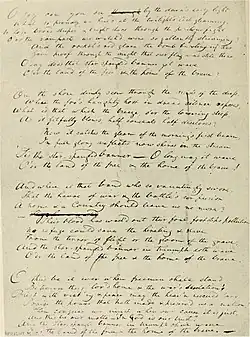 O say can you see by the dawn's early light
What so proudly we hail'd at the twilight's last gleaming,
Whose broad stripes & bright stars through the perilous fight
O'er the ramparts we watch'd, were so gallantly streaming?
And the rocket's red glare, the bomb bursting in air,
Gave proof through the night that our flag was still there
O say does that star spangled banner yet wave
O'er the land of the free & the home of the brave?
On the shore dimly seen through the mists of the deep,
Where the foe's haughty host in dread silence reposes,
What is that which the breeze, o'er the towering steep,
As it fitfully blows, half conceals, half discloses?
Now it catches the gleam of the morning's first beam,
In full glory reflected now shines in the stream,
'Tis the star-spangled banner — O long may it wave
O'er the land of the free & the home of the brave!
And where is that band who so vauntingly swore,
That the havoc of war & the battle's confusion
A home & a Country should leave us no more?
Their blood has wash'd out their foul footstep's pollution
No refuge could save the hireling & slave
From the terror of flight or the gloom of the grave,
And the star-spangled banner in triumph doth wave
O'er the land of the free & the home of the brave.
O thus be it ever when freemen shall stand
Between their lov'd home & the war's desolation!
Blest with vict'ry & peace may the heav'n rescued land
Praise the power that hath made & preserv'd us a nation!
Then conquer we must, when our cause it is just,
And this be our motto — "In God is our trust,"
And the star-spangled banner in triumph shall wave
O'er the land of the free & the home of the brave. —